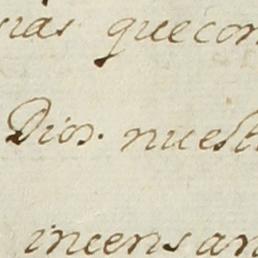 sias que con
Dios. nuest
incensan